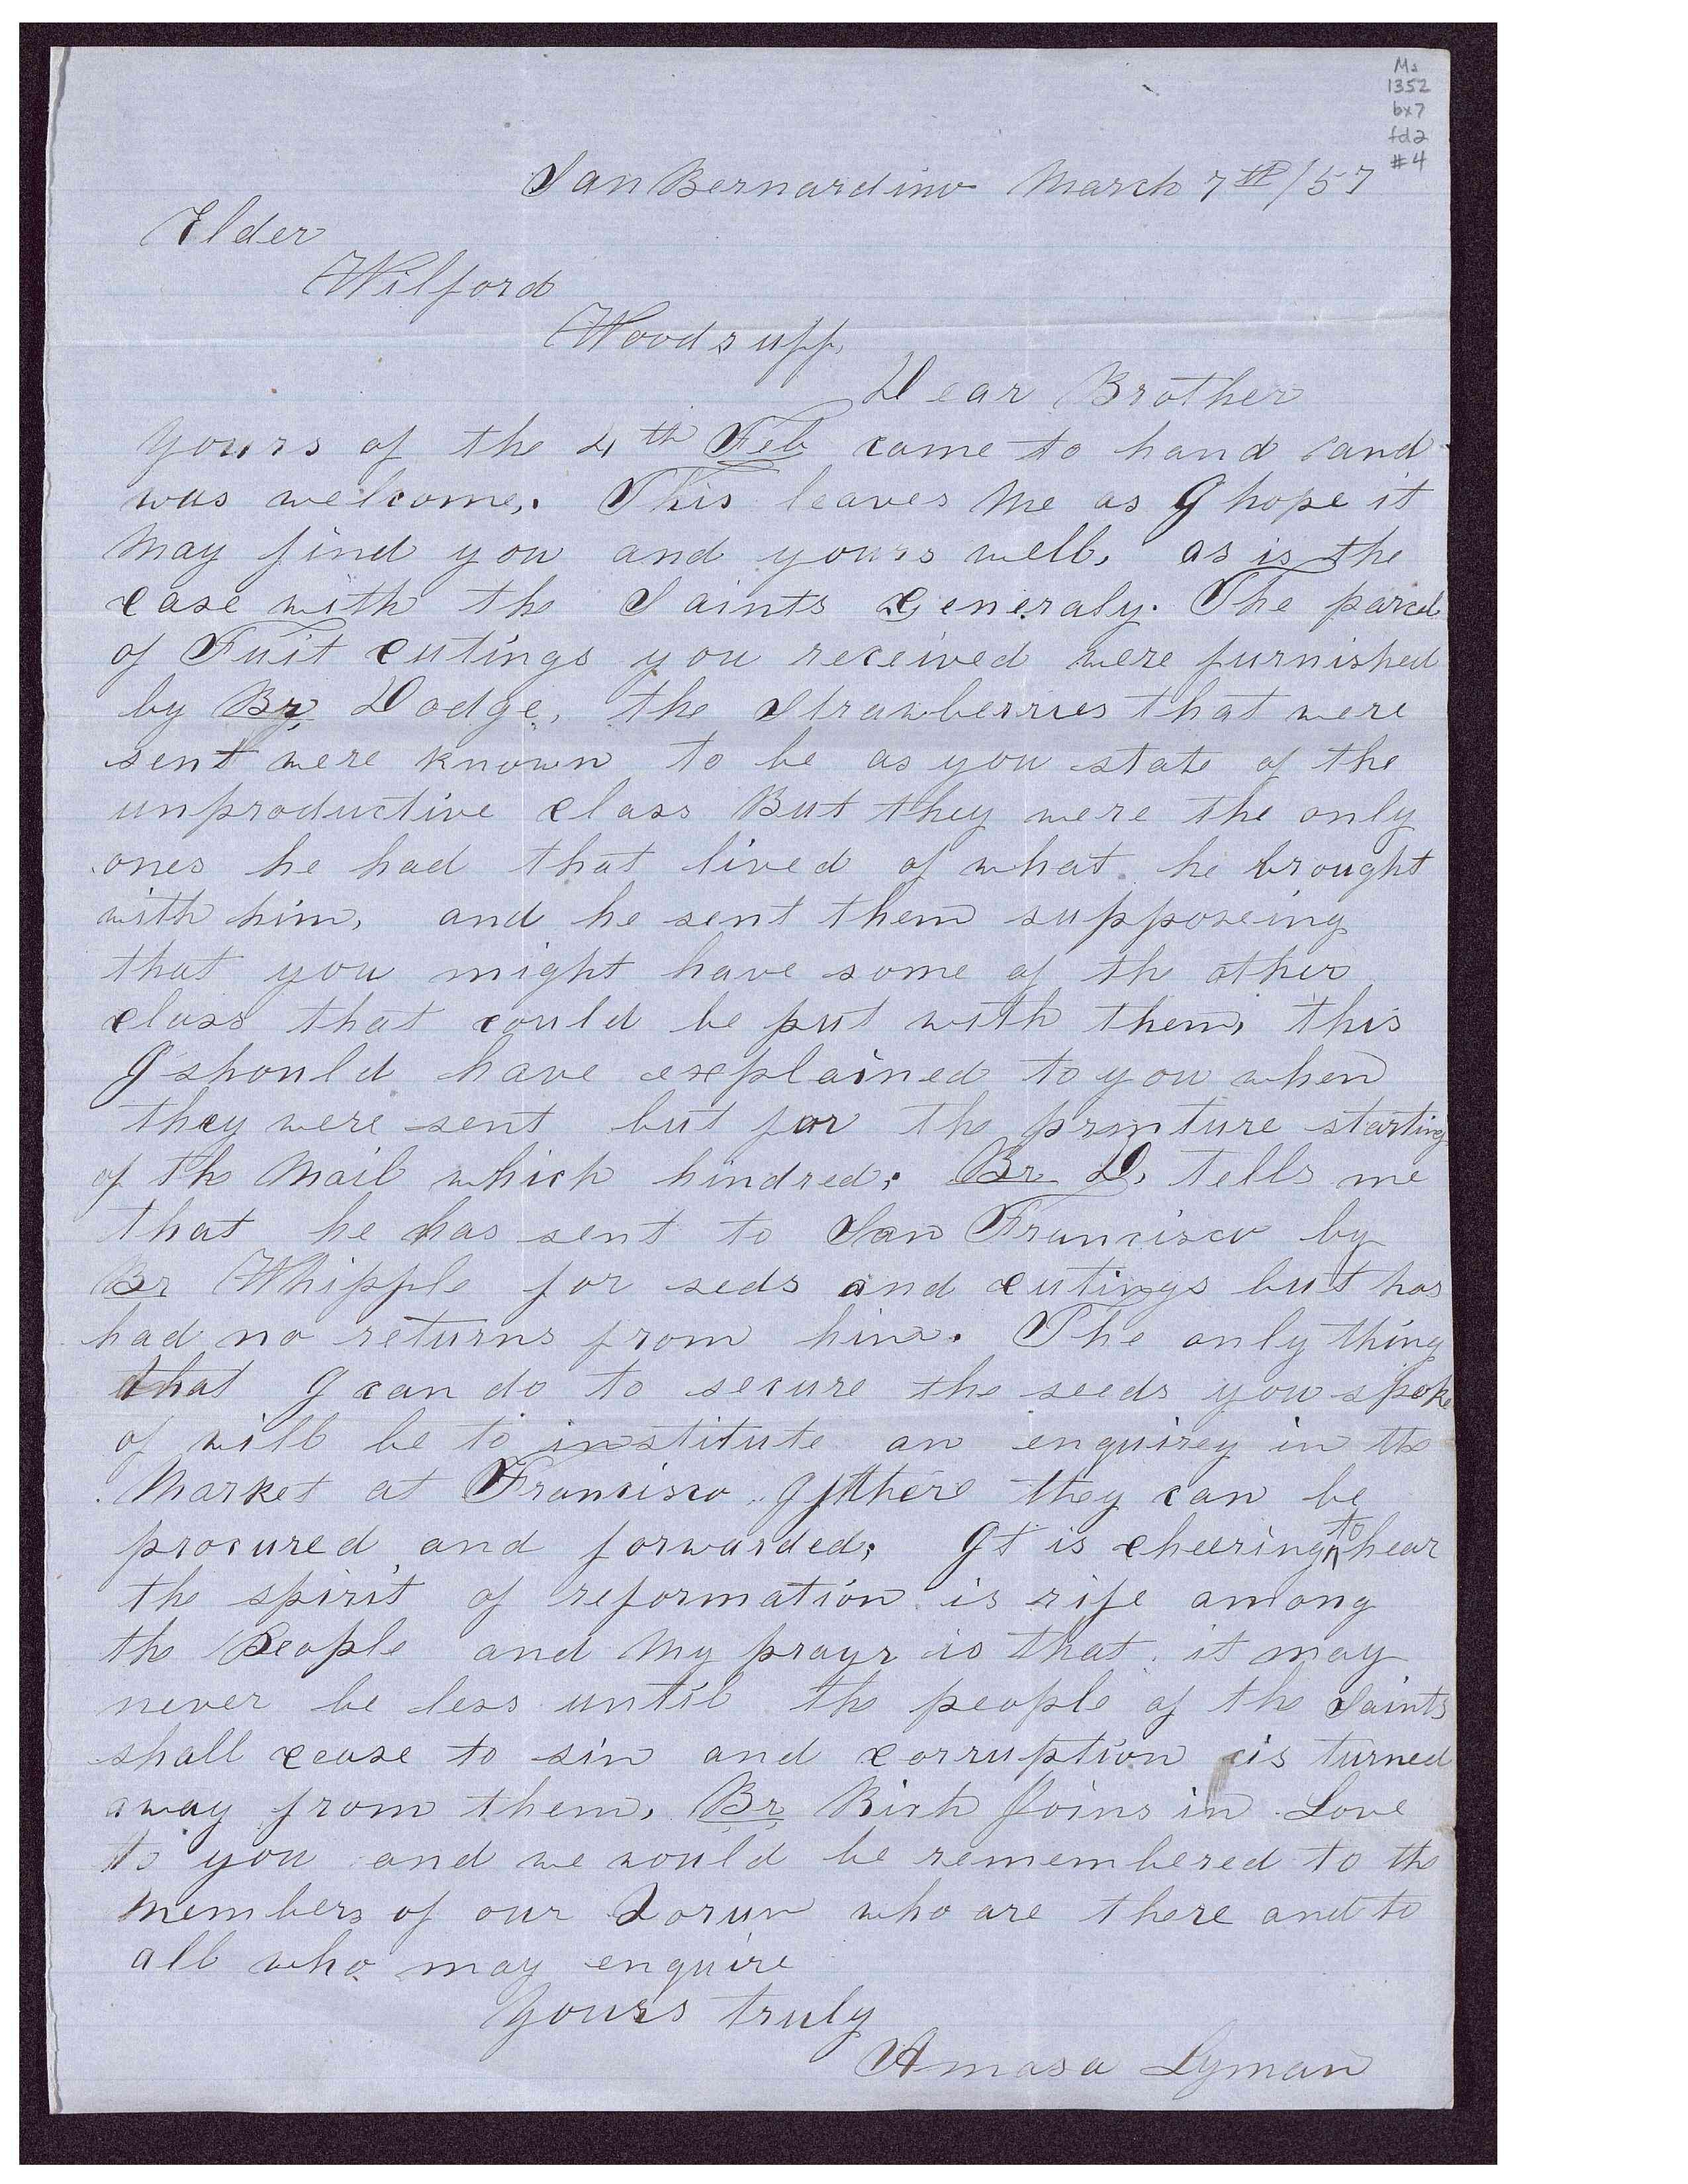 Ms
1352
bx7
fd2
#4
San Bernardino March 7th/57
Elder
Wilford
Woodruff
Dear Brother
Yours of the 4th Feb came to hand and
was welcome,. This leaves me as I hope it
May find you and yours well, as is the
case with the Saints Generaly. The parcel
of Fuit cutings you received were furnished
by Br Dodge, the Strawberries that were
sent were known to be as you state of the
unproductive class But they were the only
ones he had that lived of what he brought
with him, and he sent them supposeing
that you might have some of the other
class that could be put with them, this
I should have explained to you when
they were sent but for the prmture starting
of the Mail which hindred; Br D, tells me
that he has sent to San Francisco by
Br Whipple for seds and cutings but has
had no returns from him. The only thing
that I can do to secure the seeds you spoke
of will be to institute an enquirey in the
Market at Francisco If there they can be
procured and forwarded; It is cheering to hear
the spirit of reformation is rife among
the People and My prayr is that it may
never be less until the people of the Saints
shall cease to sin and corruption is turned
away from them, Br Rich Joins in Love
to you and we would be remembered to the
Members of our Qorum who are there and to
all who may enquire
Yours truly
Amasa Lyman